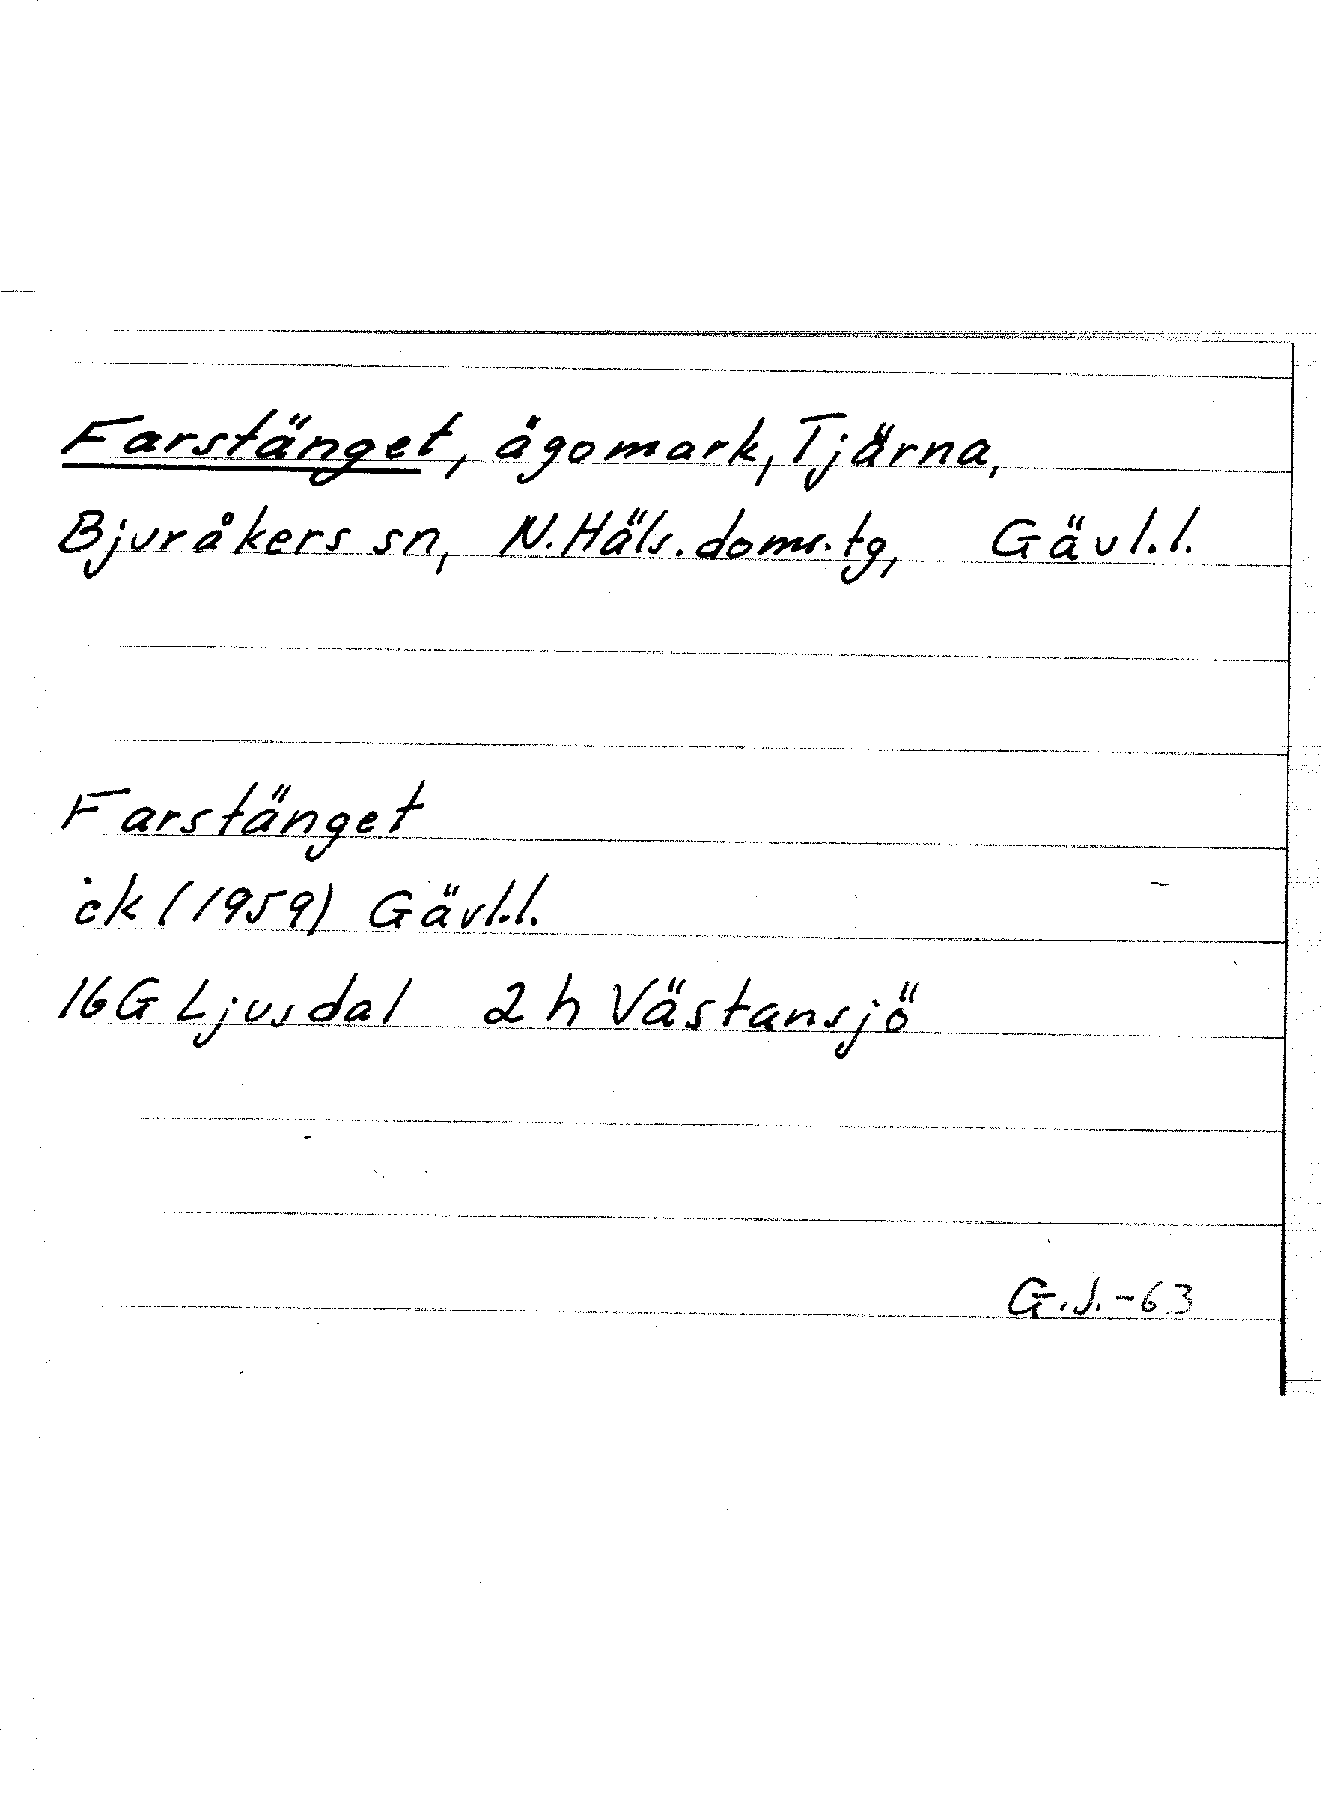 Farstänget, ägomark, Tjärna,
Bjuråkers sn, N. Häls. doms. tg, Gävl. l.
Farstänget
ek (1959) Gävl. l.
16G Ljusdal 2h Västansjö
G.J.-63